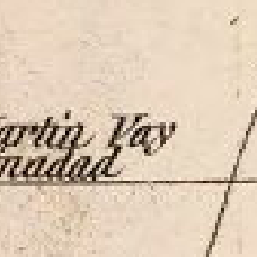 artin Vay
nadad